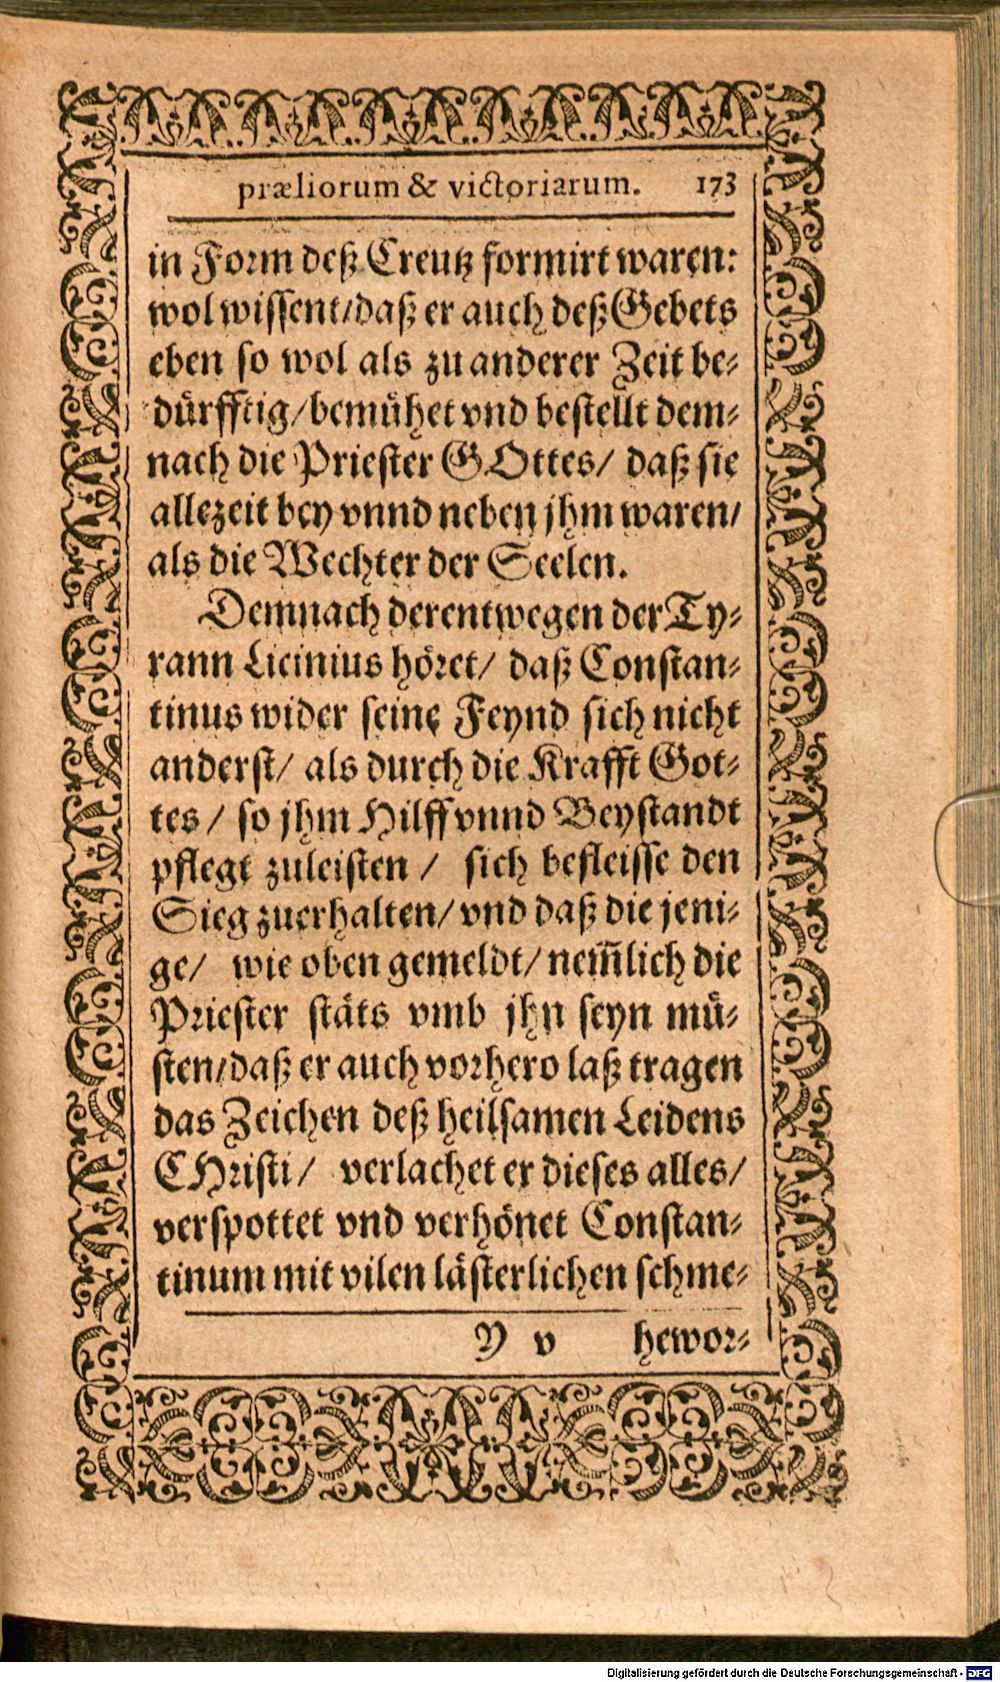 præliorum & victoriarum. 173
in Form deß Creutz formirt waren:
wol wissent/daß er auch deß Gebets
eben so wol als zu anderer Zeit be-
dürfftig/bemühet vnd bestellt dem-
nach die Priester GOttes/ daß sie
allezeit bey vnnd neben jhm waren/
als die Wechter der Seelen.
Demnach derentwegen der Ty-
rann Licinius höret/ daß Constan-
tinus wider seine Feynd sich nicht
anderst/ als durch die Krafft Got-
tes/ so jhm Hilff vnnd Beystandt
pflegt zuleisten/ sich befleisse den
Sieg zuerhalten/ vnd daß die jeni-
ge/ wie oben gemeldt/ nem̃lich die
Priester stäts vmb jhn seyn mü-
sten/daß er auch vorhero laß tragen
das Zeichen deß heilsamen Leidens
CHristi/ verlachet er dieses alles/
verspottet vnd verhönet Constan-
tinum mit vilen lästerlichen schme-
Y v hewor-
Digitalisierung gefördert durch die Deutsche Forschungsgemeinschaft - DFG